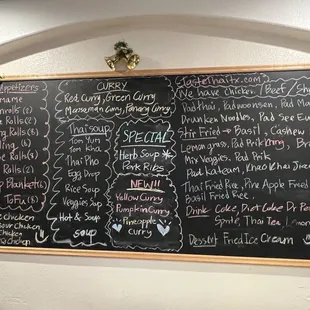 Appetizers
Rolls (2)
Rolls (5)
Rolls (2)
Blanket (5)
Tofu (8)
chicken
our chicken
chicken
chicken
CURRY
Red Curry, Green Curry
Massaman Curry, Panang Curry
Thai soup
Tom Yum
Tom Kha
Thai Pho
Egg Drop
Rice Soup
Veggies Soup
Hot & Sour
soup
SPECIAL
Herb Soup
Pork Ribs
NEW!!
Yellow Curry
Pumpkin Curry
Pineapple
curry
Tastethaitx.com
We have chicken, Beef/Sh
Padthai, Padwoonsen, Pad Ma
Drunken Noodles, Pad See Eu
Stir Fried → Basil, Cashew
Lemon grass, Pad Prik King, Bro
Mix Veggies, Pad Prik
Pad Kateam, Khao Khai Jiea
Thai Fried Rice, Pine Apple Fried
Basil Fried Rice.
Drink Coke, Diet Coke, Dr. P
Sprite, Thai Tea, Lemon
Dessert Fried Ice Cream